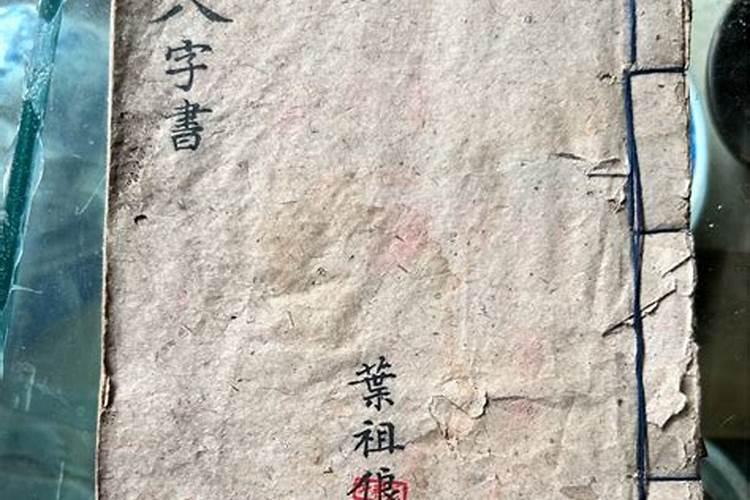 八字書
葉祖